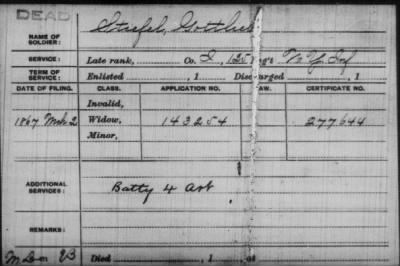 DEAD
NAME OF SOLDIER: Stiefel, Gottlieb
SERVICE: Late rank, Co. I, 125 Reg't N. Y. Inf
TERM OF SERVICE: Enlisted , 1 Discharged , 1
DATE OF FILING. CLASS. APPLICATION NO. LAW. CERTIFICATE NO.
Invalid,
1867 Mch 2 Widow, 143254 277644
Minor,
ADDITIONAL SERVICES: Batty 4 Art
REMARKS:
Died , 1 , at